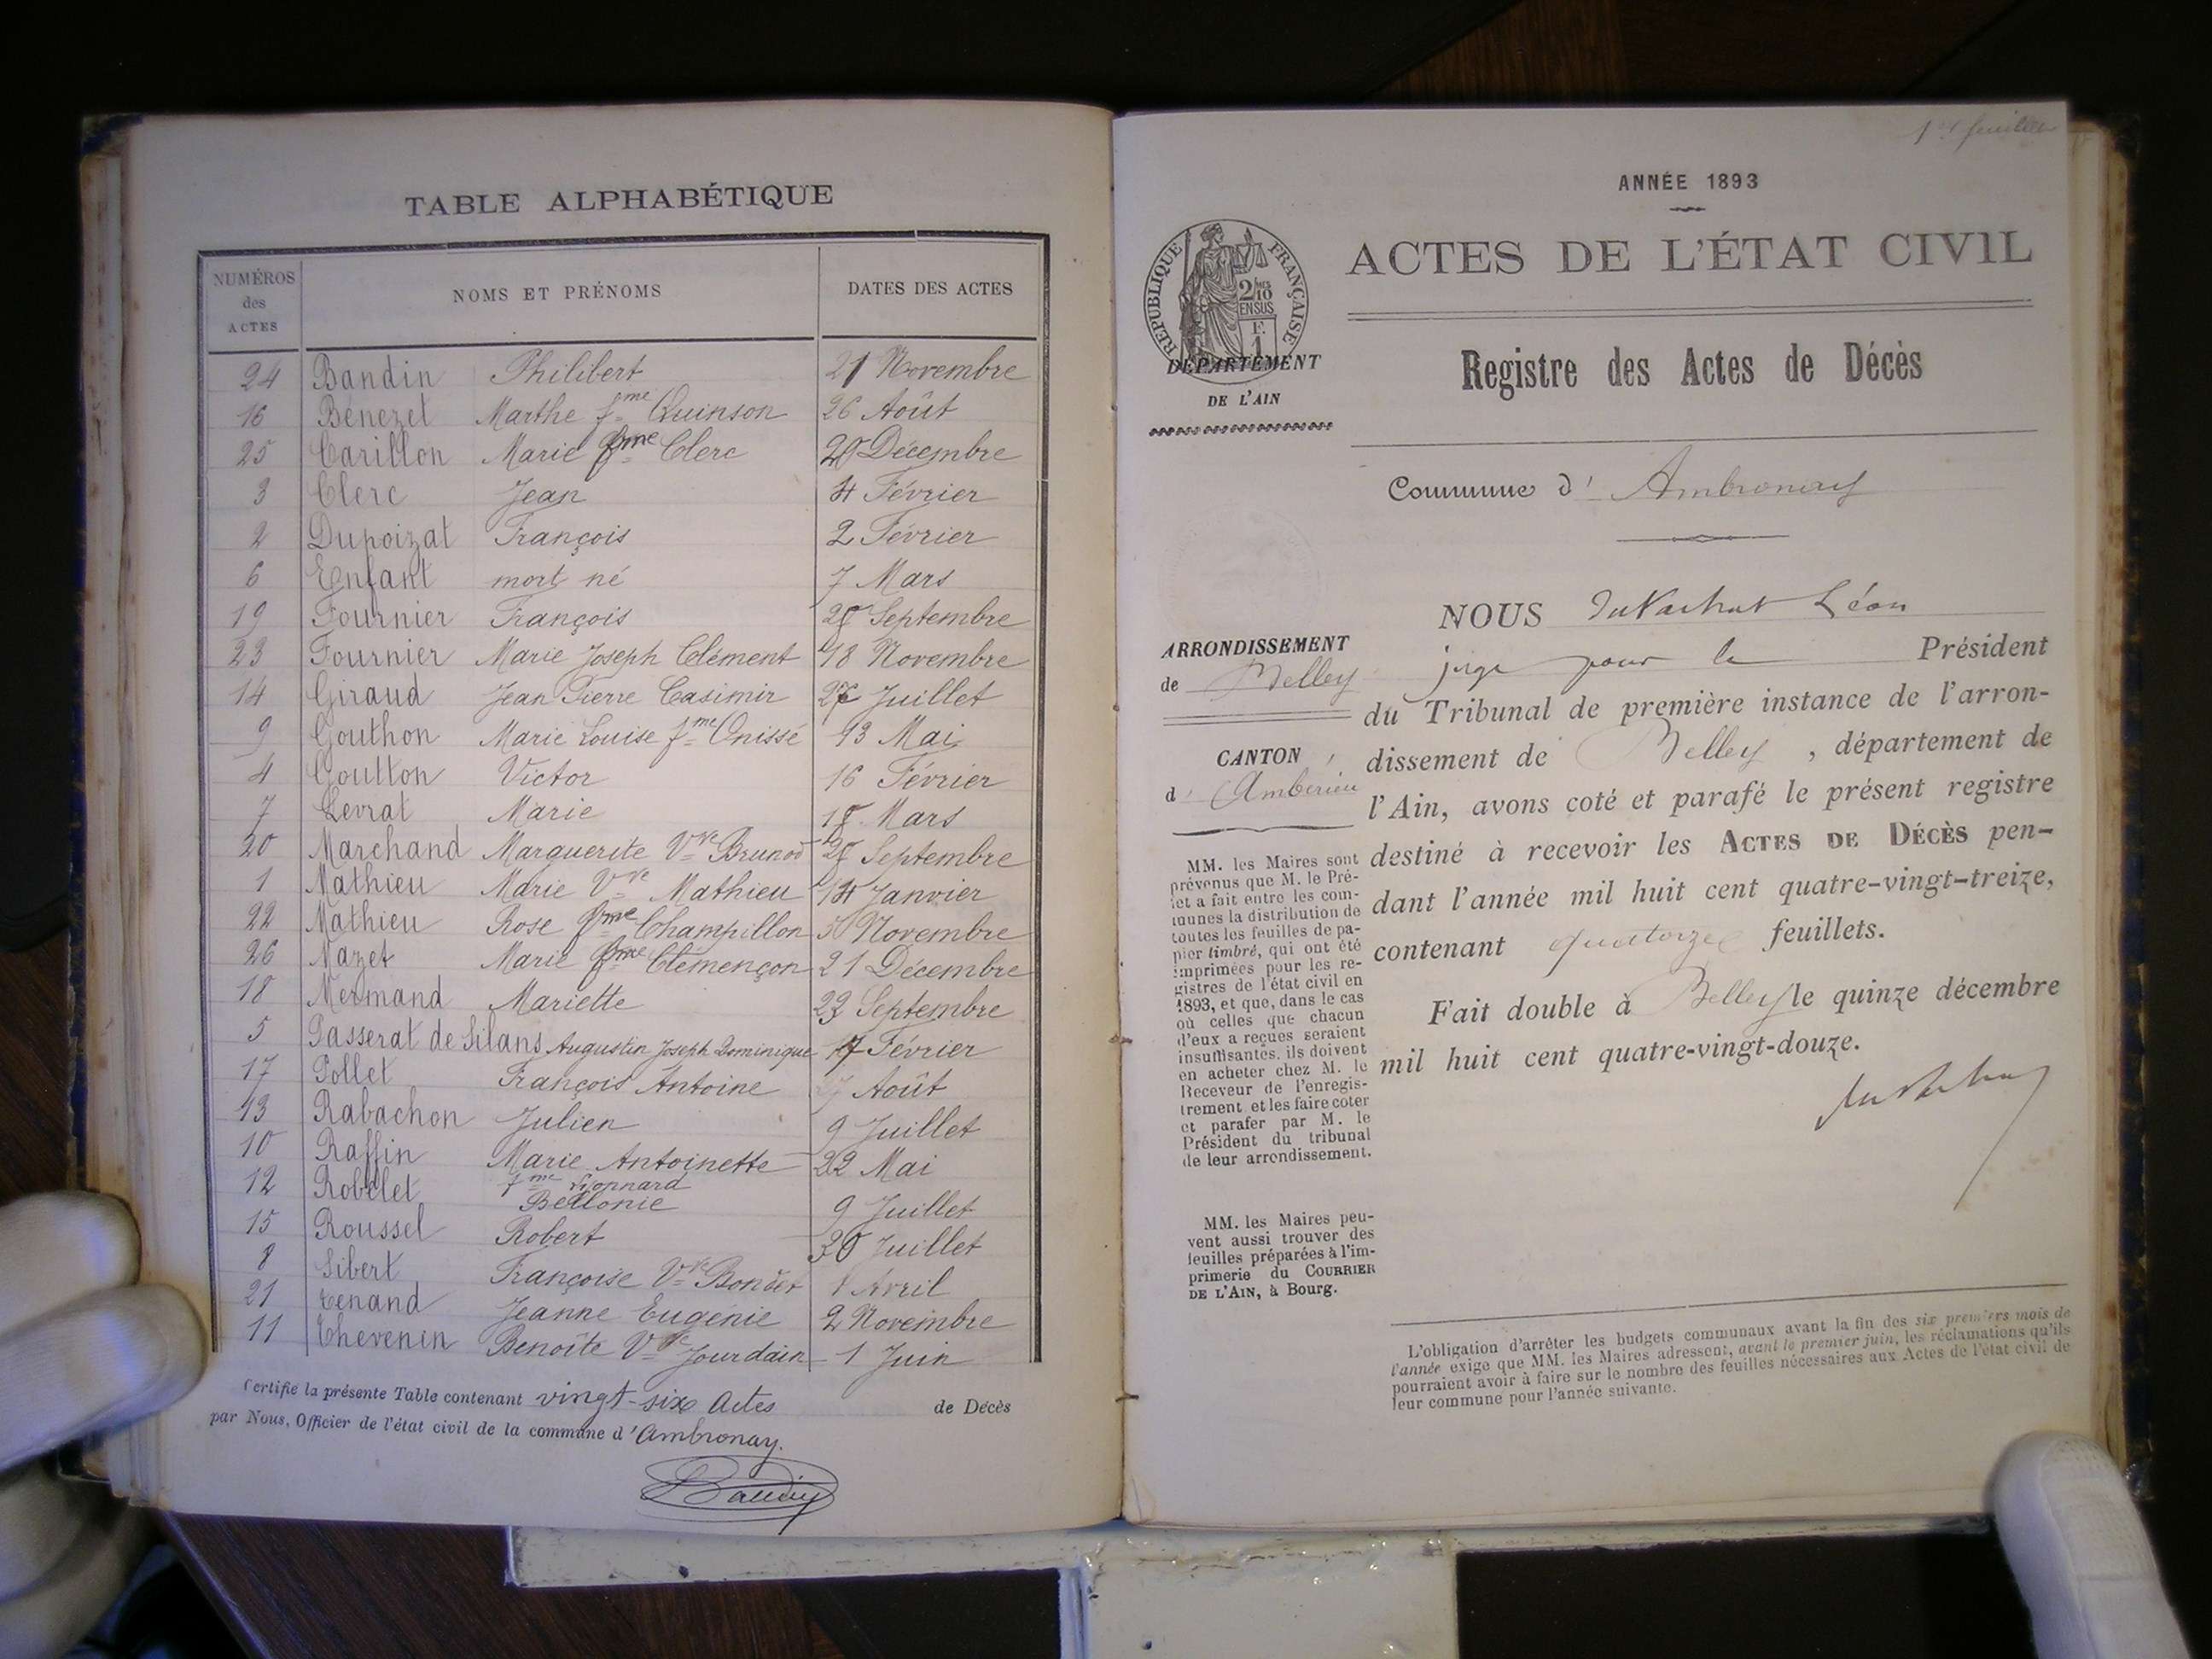 TABLE ALPHABÉTIQUE
NUMÉROS des ACTES NOMS ET PRÉNOMS DATES DES ACTES
24 Bandin Philibert 21 Novembre
16 Bénezet Marthe fme Quinson 26 Août
25 Carillon Marie fme Clerc 20 Décembre
3 Clerc Jean 4 Février
2 Dupoizat François 2 Février
6 Enfant mort né 7 Mars
19 Fournier François Septembre
23 Fournier Marie Joseph Clément 18 Novembre
14 Giraud Jean Pierre Casimir Juillet
9 Gouthon Marie Louise fme Onissé 13 Mai
4 Goutton Victor 16 Février
7 Levrat Marie 18 Mars
20 Marchand Marguerite Vve Brunod Septembre
1 Mathieu Marie Vve Mathieu 14 Janvier
22 Mathieu Rose fme Champillon Novembre
26 Nazet Marie fme Clémençon 21 Décembre
18 Mermand Mariette 23 Septembre
5 Passerat de Silans Augustin Joseph Dominique 17 Février
17 Pollet François Antoine Août
13 Rabachon Julien 9 Juillet
10 Raffin Marie Antoinette 22 Mai
fme Lionnard
12 Robelet Bellonie 9 Juillet
15 Roussel Robert 30 Juillet
8 Sibert Françoise Vve Bondet 1 Avril
21 Tenand Jeanne Eugénie 2 Novembre
11 Thevenin Benoîte Vve Jourdain 1 Juin
Certifié la présente Table contenant vingt-six actes de Décès
par Nous, Officier de l'état civil de la commune d'Ambronay.
1er feuillet
ANNÉE 1893
RÉPUBLIQUE FRANÇAISE
2/10 EN SUS
F. 1
ACTES DE L'ÉTAT CIVIL
DÉPARTEMENT
DE L'AIN
Registre des Actes de Décès
Commune d' Ambronay
NOUS Léon
juge pour le Président
du Tribunal de première instance de l'arron-
dissement de Belley, département de
l'Ain, avons coté et parafé le présent registre
destiné à recevoir les ACTES DE DÉCÈS pen-
dant l'année mil huit cent quatre-vingt-treize,
contenant quatorze feuillets.
Fait double à Belley le quinze décembre
mil huit cent quatre-vingt-douze.
ARRONDISSEMENT
de Belley
CANTON
d' Ambérieu
MM. les Maires sont
prévenus que M. le Pré-
fet a fait entre les com-
munes la distribution de
toutes les feuilles de pa-
pier timbré, qui ont été
imprimées pour les re-
gistres de l'état civil en
1893, et que, dans le cas
où celles que chacun
d'eux a reçues seraient
insuffisantes, ils doivent
en acheter chez M. le
Receveur de l'enregis-
trement et les faire coter
et parafer par M. le
Président du tribunal
de leur arrondissement.
MM. les Maires peu-
vent aussi trouver des
feuilles préparées à l'im-
primerie du COURRIER
DE L'AIN, à Bourg.
L'obligation d'arrêter les budgets communaux avant la fin des six premiers mois de
l'année exige que MM. les Maires adressent, avant le premier juin, les réclamations qu'ils
pourraient avoir à faire sur le nombre des feuilles nécessaires aux Actes de l'état civil de
leur commune pour l'année suivante.